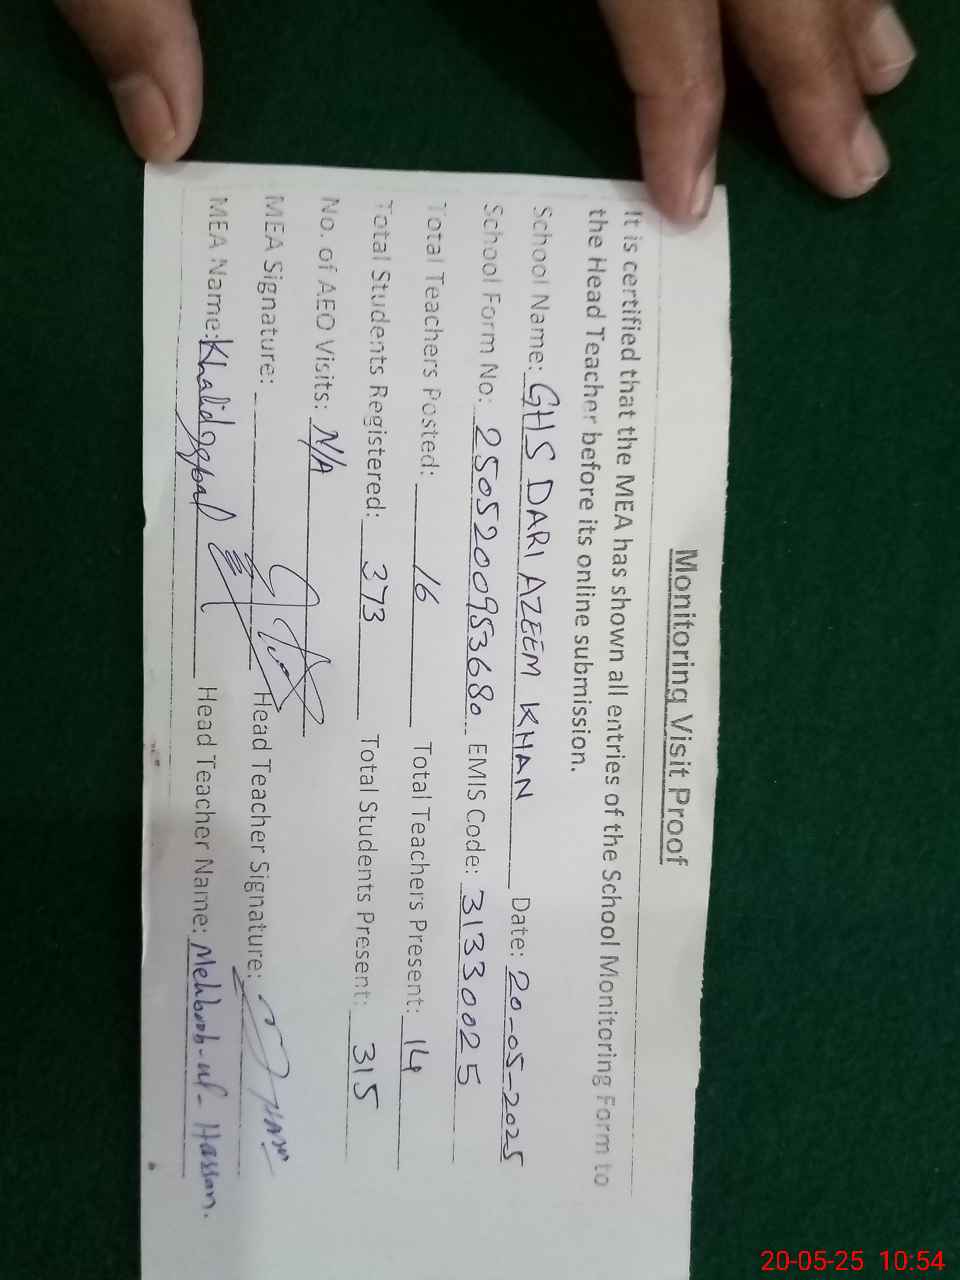 Monitoring Visit Proof
It is certified that the MEA has shown all entries of the School Monitoring Form to
the Head Teacher before its online submission.
School Name: GHS DARI AZEEM KHAN Date: 20-05-2025
School Form No: 2505200953680 EMIS Code: 31330025
Total Teachers Posted: 16 Total Teachers Present: 14
Total Students Registered: 373 Total Students Present: 315
No. of AEO Visits: N/A
MEA Signature: Head Teacher Signature:
MEA Name: Khalid Iqbal Head Teacher Name: Mehboob-ul-Hassan.
20-05-25 10:54